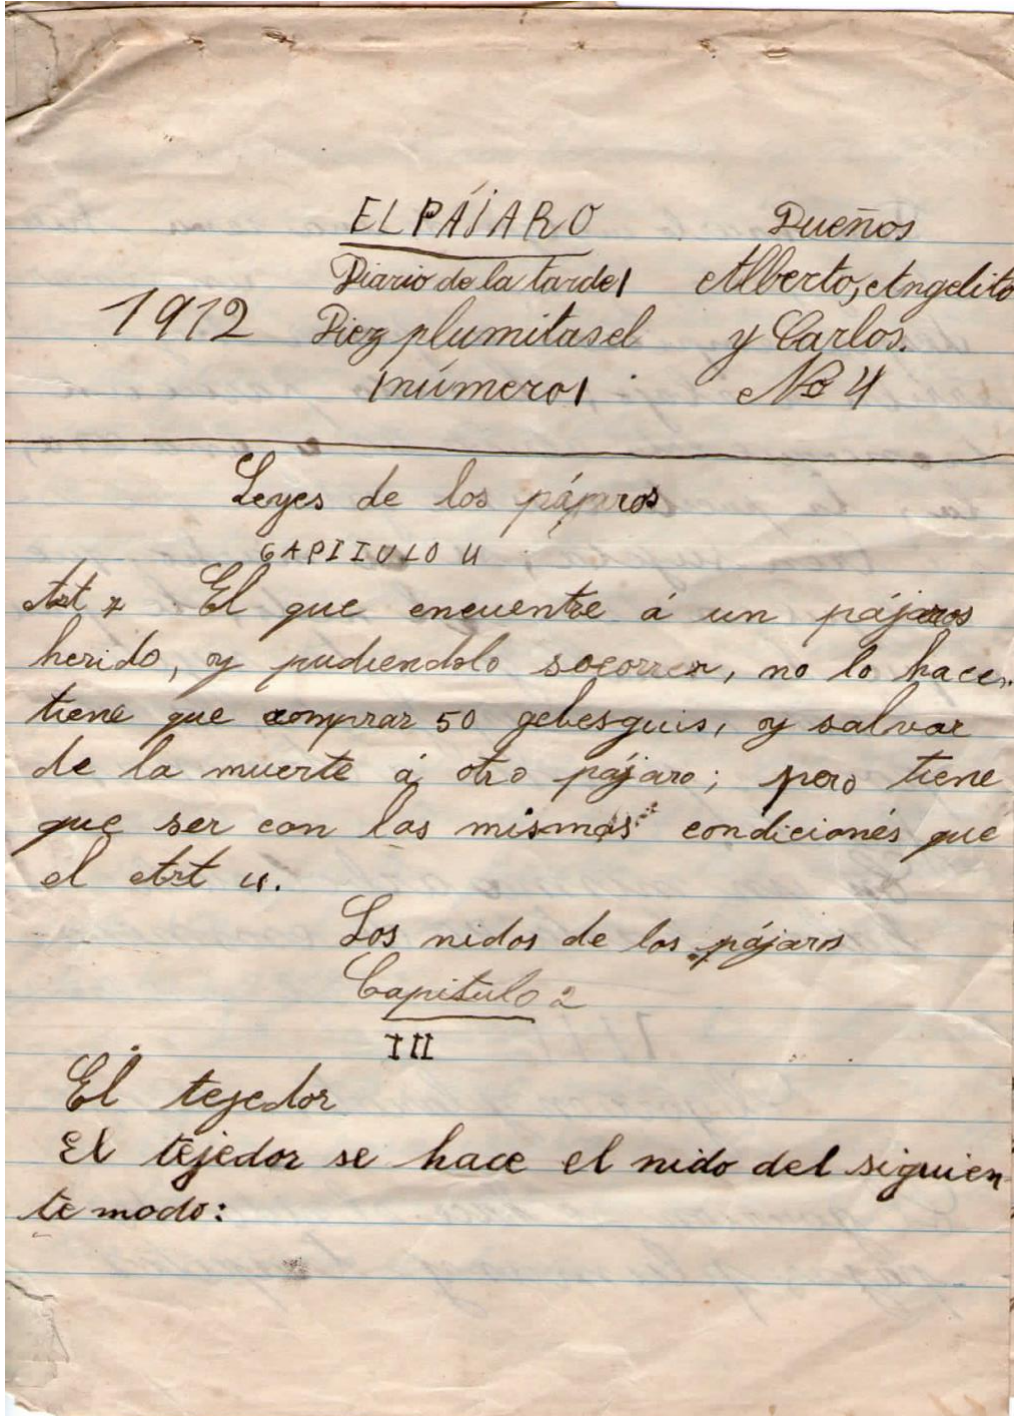 EL PÁJARO
Dueños
Diario de la tarde
Alberto, Angelito
1912
Diez plumitas el
y Carlos.
número
No 4
Leyes de los pájaros
CAPITULO 4
Art 7 El que encuentre á un pájaros
herido, y pudiendolo socorrer, no lo hace,
tiene que comprar 50 gebesguis, y salvar
de la muerte á otro pájaro; pero tiene
que ser con las mismas condicionés que
el Art 4.
Los nidos de los pájaros
Capitulo 2
III
El tejedor
El tejedor se hace el nido del siguien
te modo: